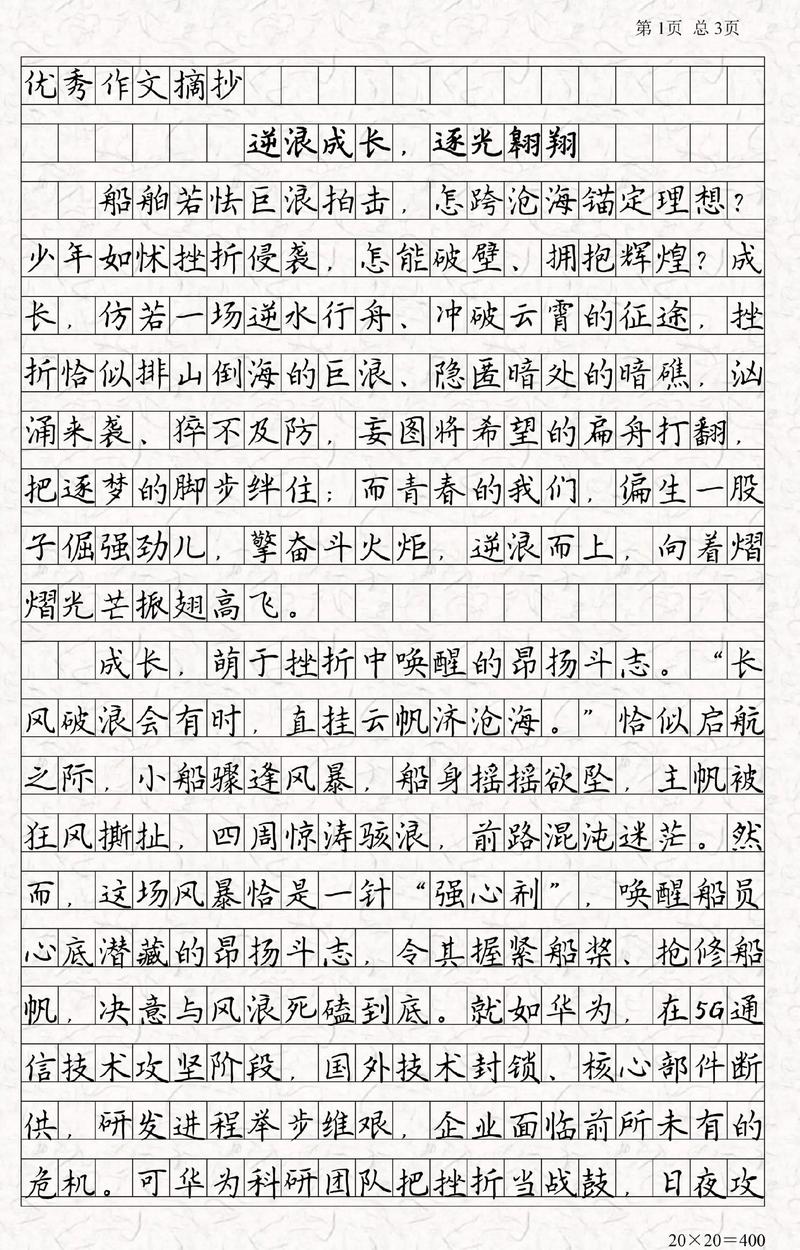 第1页 总3页
优秀作文摘抄
逆浪成长，逐光翱翔
船舶若怯巨浪拍击，怎跨沧海锚定理想？
少年如怵挫折侵袭，怎能破壁、拥抱辉煌？成
长，仿若一场逆水行舟、冲破云霄的征途，挫
折恰似排山倒海的巨浪、隐匿暗处的暗礁，汹
涌来袭、猝不及防，妄图将希望的扁舟打翻，
把逐梦的脚步绊住；而青春的我们，偏生一股
子倔强劲儿，擎奋斗火炬，逆浪而上，向着熠
熠光芒振翅高飞。
成长，萌于挫折中唤醒的昂扬斗志。“长
风破浪会有时，直挂云帆济沧海。”恰似启航
之际，小船骤逢风暴，船身摇摇欲坠，主帆被
狂风撕扯，四周惊涛骇浪，前路混沌迷茫。然
而，这场风暴恰是一针“强心剂”，唤醒船员
心底潜藏的昂扬斗志，令其握紧船桨、抢修船
帆，决意与风浪死磕到底。就如华为，在5G通
信技术攻坚阶段，国外技术封锁、核心部件断
供，研发进程举步维艰，企业面临前所未有的
危机。可华为科研团队把挫折当战鼓，日夜攻
20×20=400